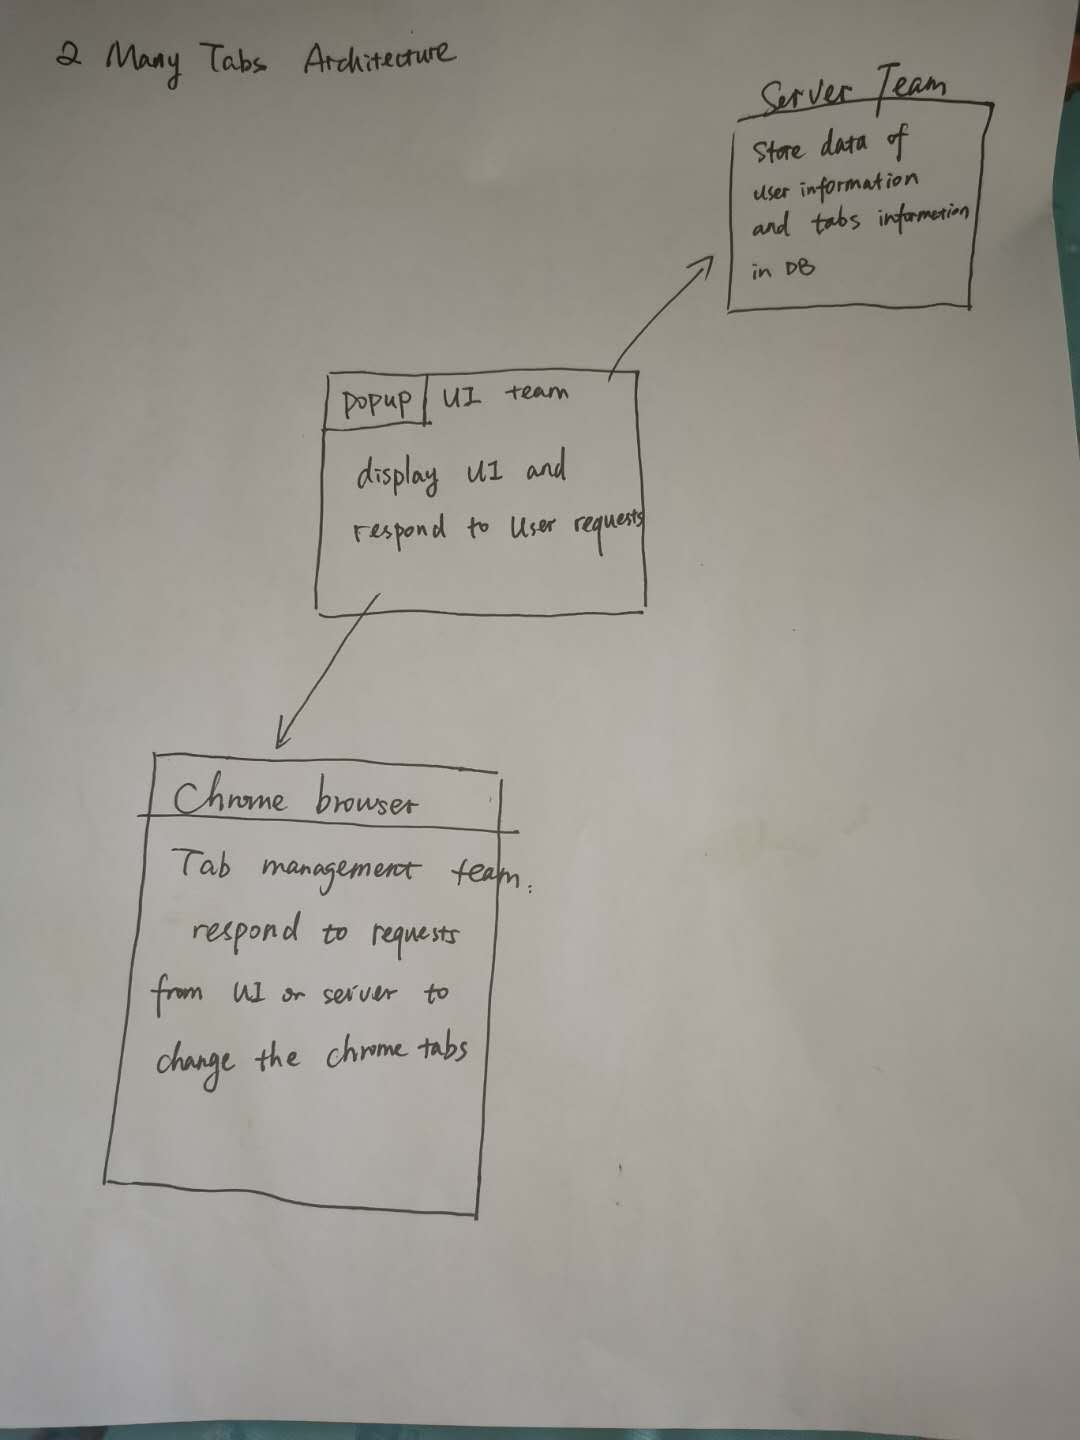 2 Many Tabs Architecture
Server Team
Store data of
user information
and tabs information
in DB
popup UI team
display UI and
respond to user requests
Chrome browser
Tab management team:
respond to requests
from UI or server to
change the chrome tabs